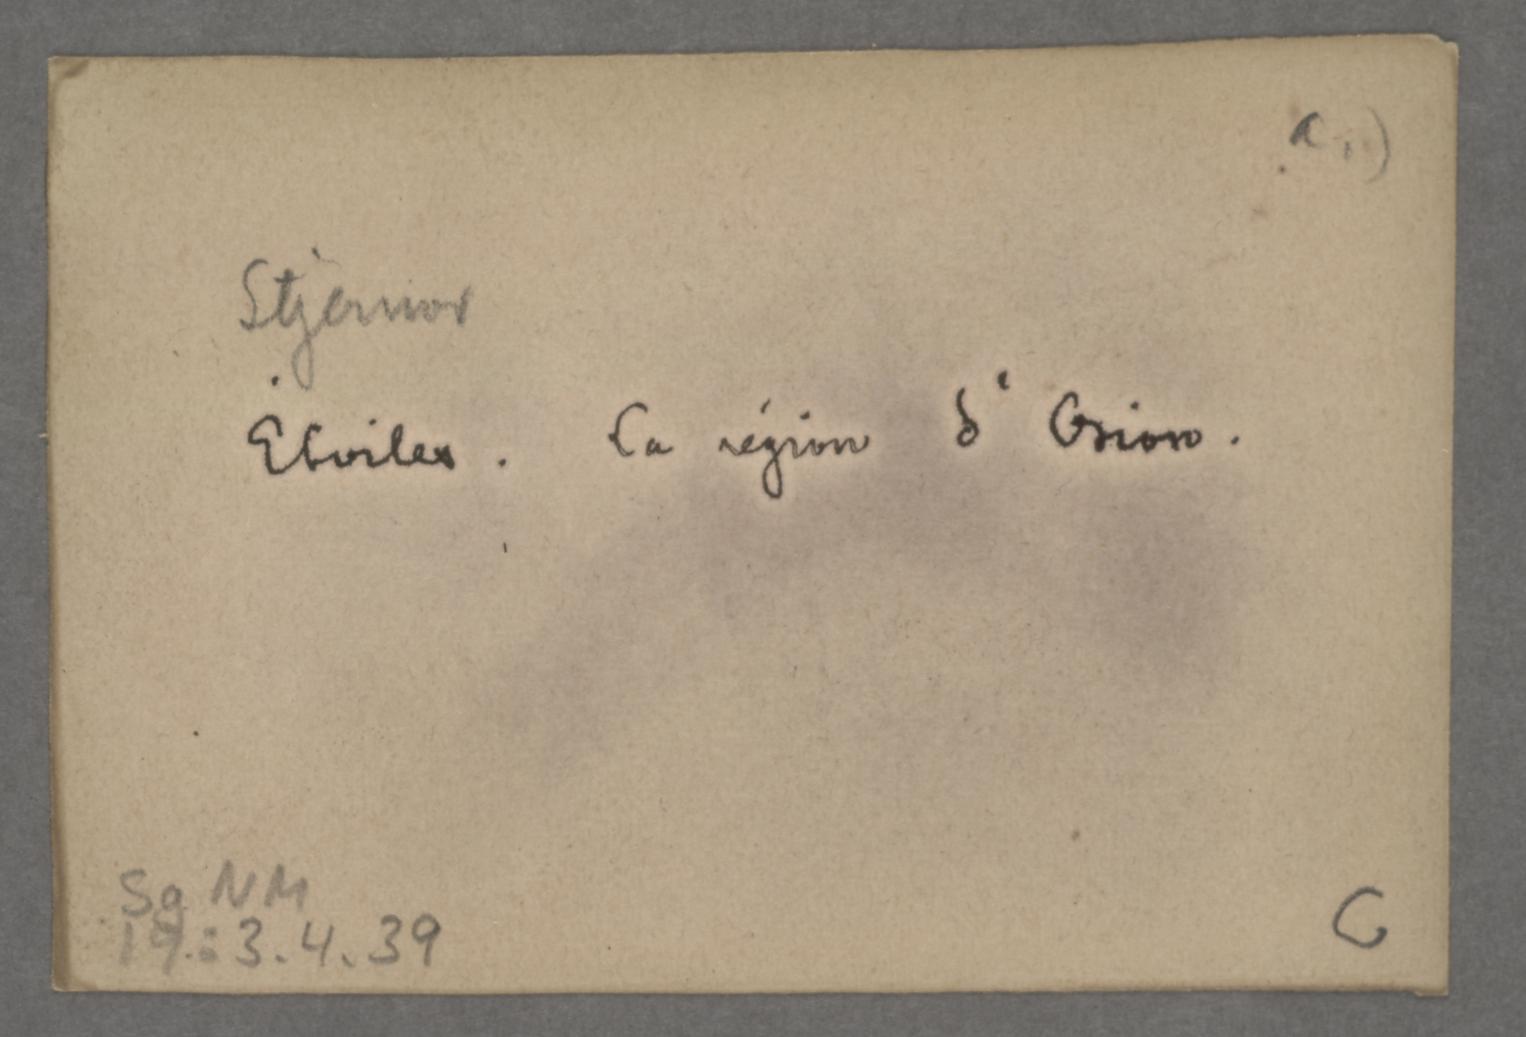 a,)
Stjernor
Étoiles. La région d' Orion.
Sg NM
19.: 3.4.39
C